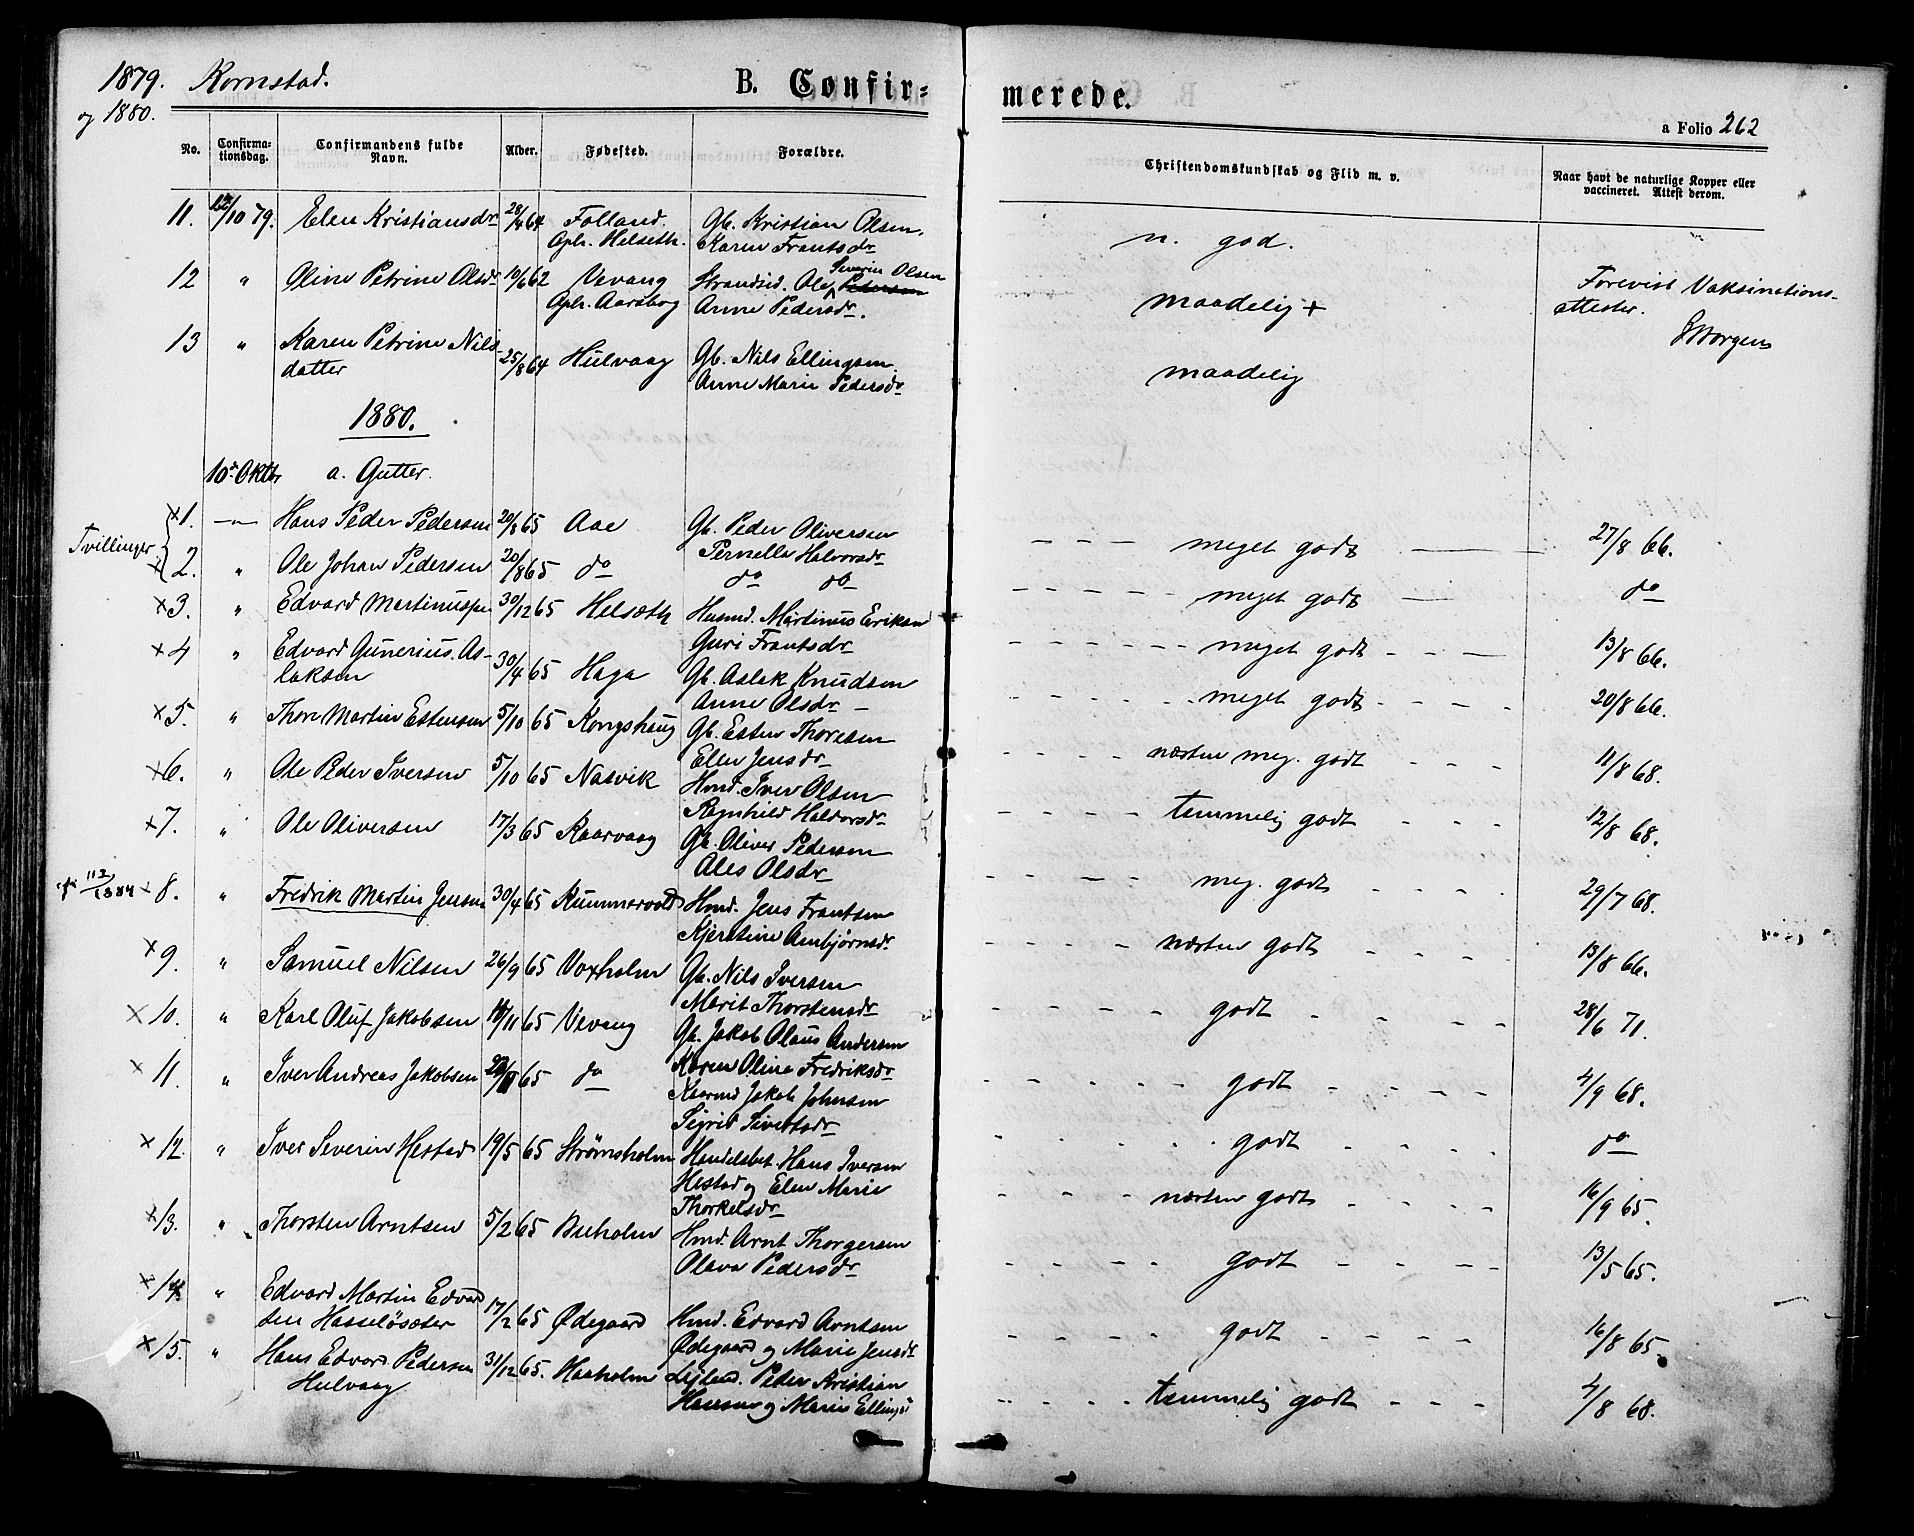 1879. Kornstad. B. Confirmerede.
og 1880. a Folio 262
No. Confirmationsdag. Confirmandens fulde Navn. Alder. Fødested. Forældre. Christendomskundskab og Flid m. v. Naar havt de naturlige Kopper eller vaccineret. Attest derom.
11. 12/10 79. Elen Kristiansdr 28/4 64 Folland. Gb. Kristian Olsen, n. god.
Oph. Helseth. Karen Frantsdr
12 " Oline Petrine Olsdr 10/6 62 Vevang Strandsid. Ole Severin Olsen maadelig + Forevist Vaksinations-
Oph. Aarsbog Anne Pedersdr. attester.
13 " Karen Petrine Nils- 25/8 64 Hulvaag Gb. Nils Ellingsen. maadelig
datter Anne Marie Pedersdr
1880.
10de Oktbr a. Gutter.
Tvillinger
x1. —"— Hans Peder Pedersen 20/8 65 Aae Gb. Peder Oliversen meget godt 27/8 66.
Pernella Halvorsdr
x2. " Ole Johan Pedersen 20/8 65 do do do meget godt do
x3. " Edvard Martinussen 30/12 65 Helsæth Husmd. Martinus Eriksen meget godt 13/8 66.
Guri Frantsdr
x4 " Edvard Gunerius As- 30/4 65 Haga Gb. Aslak Knudsen meget godt 20/8 66.
laksen Anne Olsdr
x5. " Thore Martin Estensen 5/10 65 Kongshaug Gb. Esten Thoresen næsten meg. godt 11/8 68.
Elen Jensdr
x6. " Ole Peder Iversen 5/10 65 Nasvik Hmd. Iver Olsen temmelig godt 12/8 68.
Ragnhild Haldorsdr
x7. " Ole Oliversen 17/3 65 Kaarvaag Gb. Oliver Pedersen meg. godt 29/7 68.
Ales Olsdr
113/1884 x 8. " Fredrik Martin Jensen 30/4 65 Kummervold Hmd. Jens Frantsen næsten godt 13/8 66.
Kjerstine Ambjørnsdr
x 9. " Samuel Nilsen 26/9 65 Voxholm Gb. Nils Iversen godt 28/6 71.
Marit Thorstensdr
x 10. " Karl Oluf Jakobsen 11/11 65 Vevang Gb. Jakob Olaus Andersen godt 4/9 68.
Karen Olina Fredriksdr
x 11. " Iver Andreas Jakobsen 65 do Kaarmd Jakob Johnsen godt do
Sigrid Sivertsdr
x 12. " Iver Severin Hestad 19/5 65 Strømsholm Handelsbet. Hans Iversen næsten godt 16/9 65.
Hestad og Elen Marie
Thorkelsdr
x 13. " Thorsten Arntsen 5/2 65 Bueholm Hmd. Arnt Thorgersen godt 13/5 65.
Olava Pedersdr
x 14. " Edvard Martin Edvard
sen Hasseløsæter 17/2 65 Ødegaard Hmd. Edvard Arntsen godt 16/8 65.
Ødegaard og Marie Jensdt
x 15. " Hans Edvard Pedersen 31/12 65. Haaholm Leilend. Peder Kristian temmelig godt 4/8 68.
Hulvaag Hansen og Marie Ellings